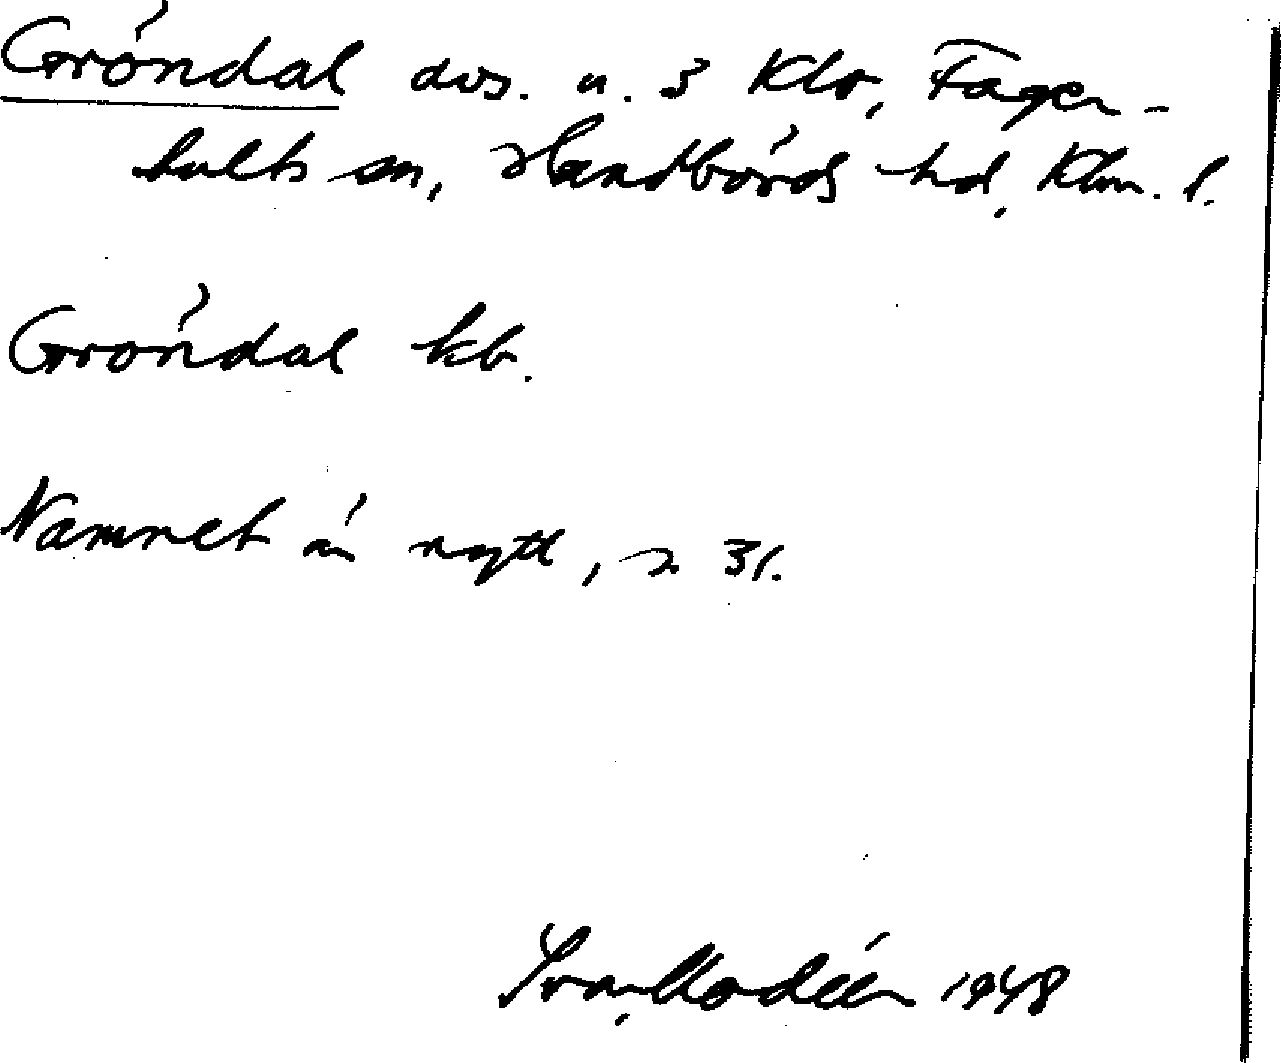 Gröndal avs. u. 3 Klo, Fager-
hults sn, Handbörds hd, Klm. l.
Gröndal kb.
Namnet är nytt, 31.
Ivar Modéer 1948